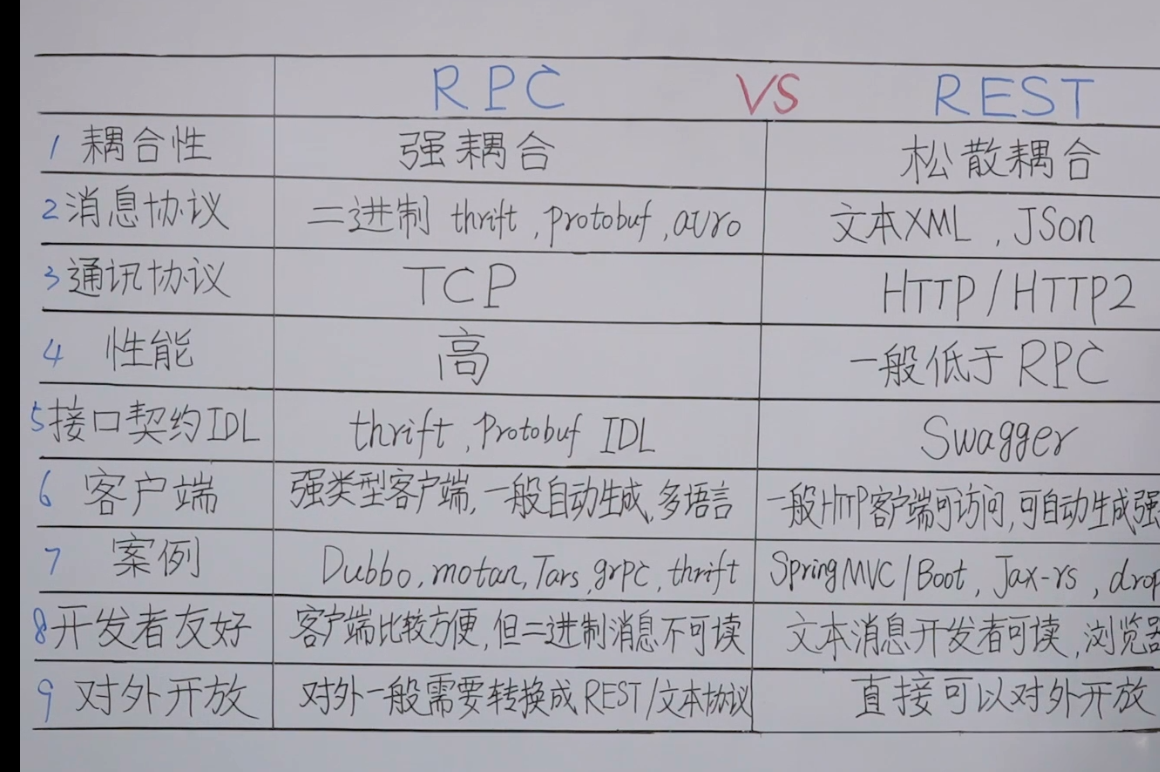 RPC VS REST
1 耦合性 强耦合 松散耦合
2 消息协议 二进制 thrift, protobuf, avro 文本XML, JSon
3 通讯协议 TCP HTTP/HTTP2
4 性能 高 一般低于RPC
5 接口契约IDL thrift, Protobuf IDL Swagger
6 客户端 强类型客户端, 一般自动生成, 多语言 一般HTTP客户端可访问, 可自动生成强
7 案例 Dubbo, motan, Tars, grpc, thrift SpringMVC/Boot, Jax-rs, drop
8 开发者友好 客户端比较方便, 但二进制消息不可读 文本消息开发者可读, 浏览器
9 对外开放 对外一般需要转换成REST/文本协议 直接可以对外开放